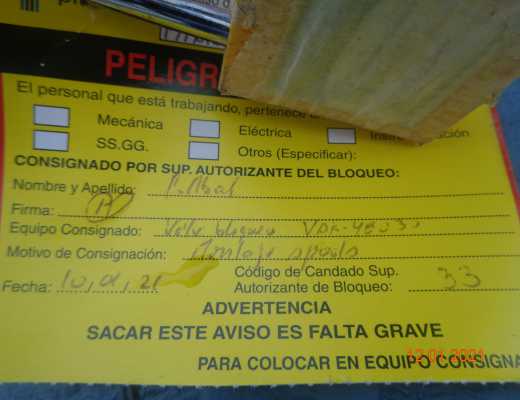 PELIGR
El personal que está trabajando, pertenece
Mecánica Eléctrica Instr ntación
SS.GG. Otros (Especificar):
CONSIGNADO POR SUP. AUTORIZANTE DEL BLOQUEO:
Nombre y Apellido:
Firma:
Equipo Consignado:
Motivo de Consignación: Montaje
Fecha: 10,01,21 Código de Candado Sup. Autorizante de Bloqueo: 33
ADVERTENCIA
SACAR ESTE AVISO ES FALTA GRAVE
PARA COLOCAR EN EQUIPO CONSIGNA
12.01.2021